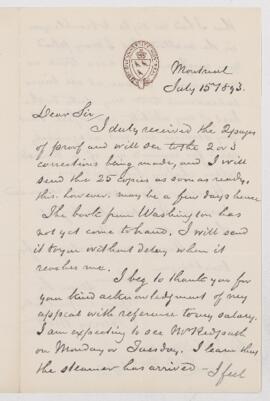 Montreal
July 15th 1893.
Dear Sir,
I duly received the 2 pages
of proof and will see to the 2 or 3
corrections being made, and I will
send the 25 copies as soon as ready,
this, however, may be a few days hence.
The book from Washington has
not yet come to hand. I will send
it to you without delay when it
reaches me.
I beg to thank you for
your kind acknowledgment of my
appeal with reference to my salary.
I am expecting to see Mr Redpath
on Monday or Tuesday. I learn that
the steamer has arrived - I feel